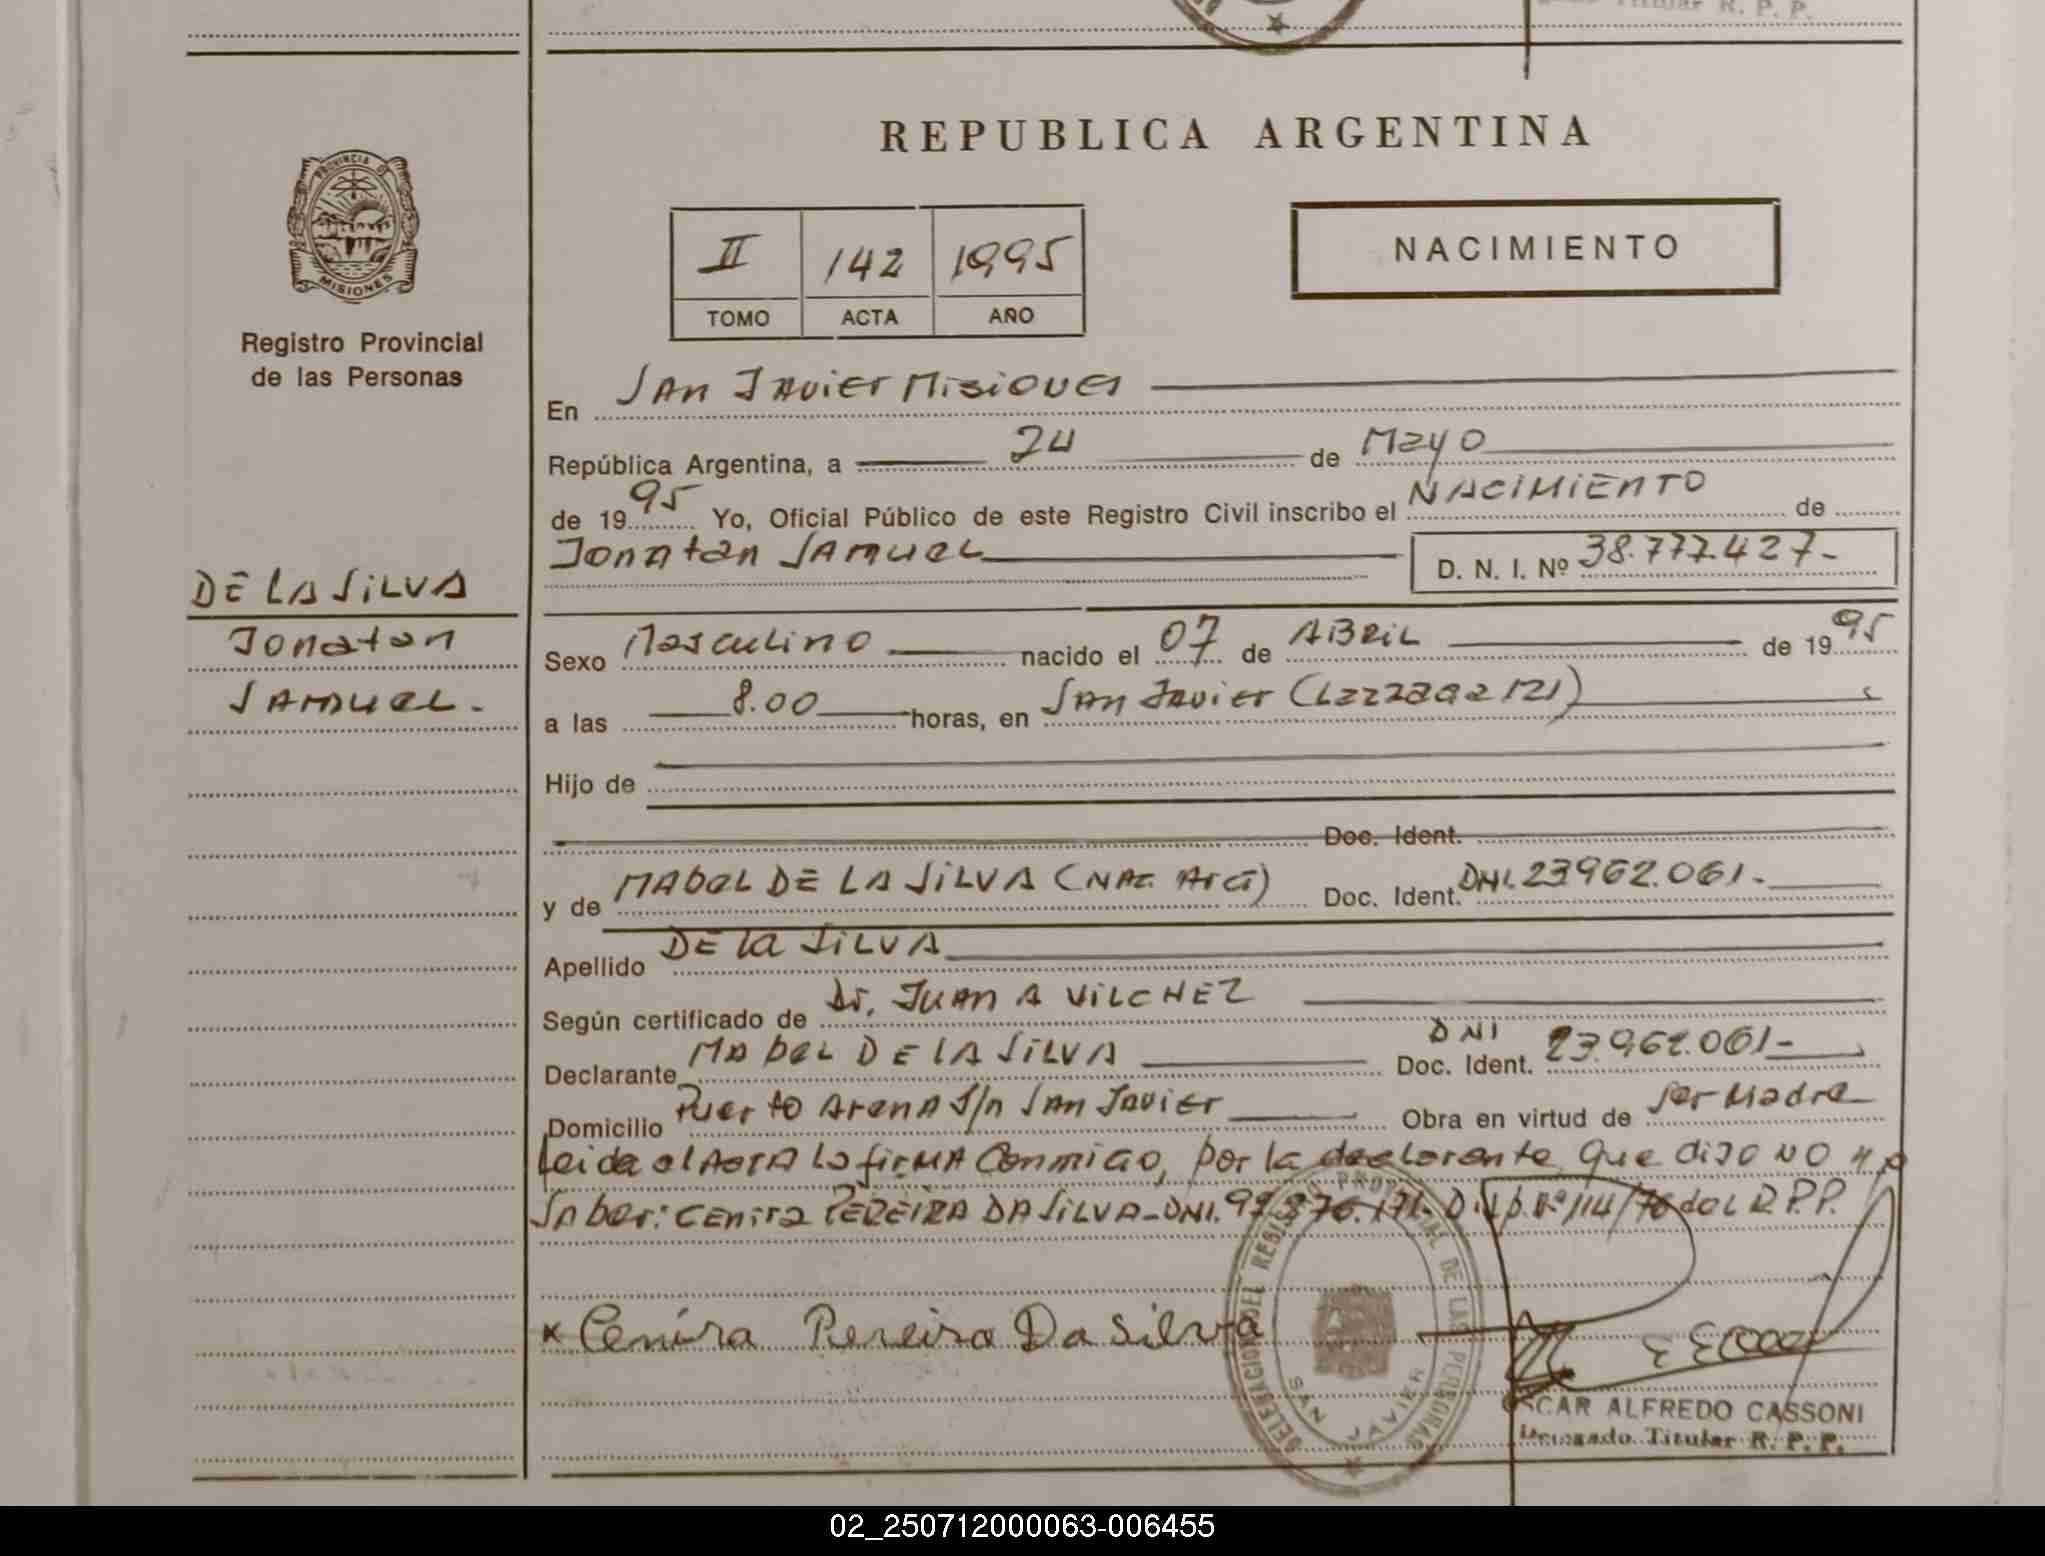 Titular R. P. P.
REPUBLICA ARGENTINA
PROVINCIA D
MISIONES
Registro Provincial
de las Personas
II 142 1995
TOMO ACTA AÑO
NACIMIENTO
En San Javier Misiones
República Argentina, a 24 de Mayo
de 1995 Yo, Oficial Público de este Registro Civil inscribo el NACIMIENTO de
Jonatan Samuel D. N. I. Nº 38.777.427-
DE LA SILVA
Jonatan
Samuel.-
Sexo Masculino nacido el 07 de ABRIL de 1995
a las 8.00 horas, en San Javier (Lezzaga 121)
Hijo de
Doc. Ident.
y de Mabel DE LA SILVA (NAC. Arg) Doc. Ident. DNI. 23962.061.-
Apellido DE la SILVA
Según certificado de Dr. Juan A VILCHEZ
Declarante Mabel DE LA SILVA Doc. Ident. DNI 23.962.061-
Domicilio Puerto Arena S/n San Javier Obra en virtud de Ser Madre
Leida el Acta La firma Conmigo, por la declarante que dijo NO
Saber: Cenira PEREIRA DA SILVA-DNI. Nº 114/76 del R.P.P.
x Cenira Pereira Da Silva
DELEGACION DEL REGISTRO PROVINCIAL DE LAS PERSONAS
SAN JAVIER
OSCAR ALFREDO CASSONI
Delegado Titular R. P. P.
02_250712000063-006455